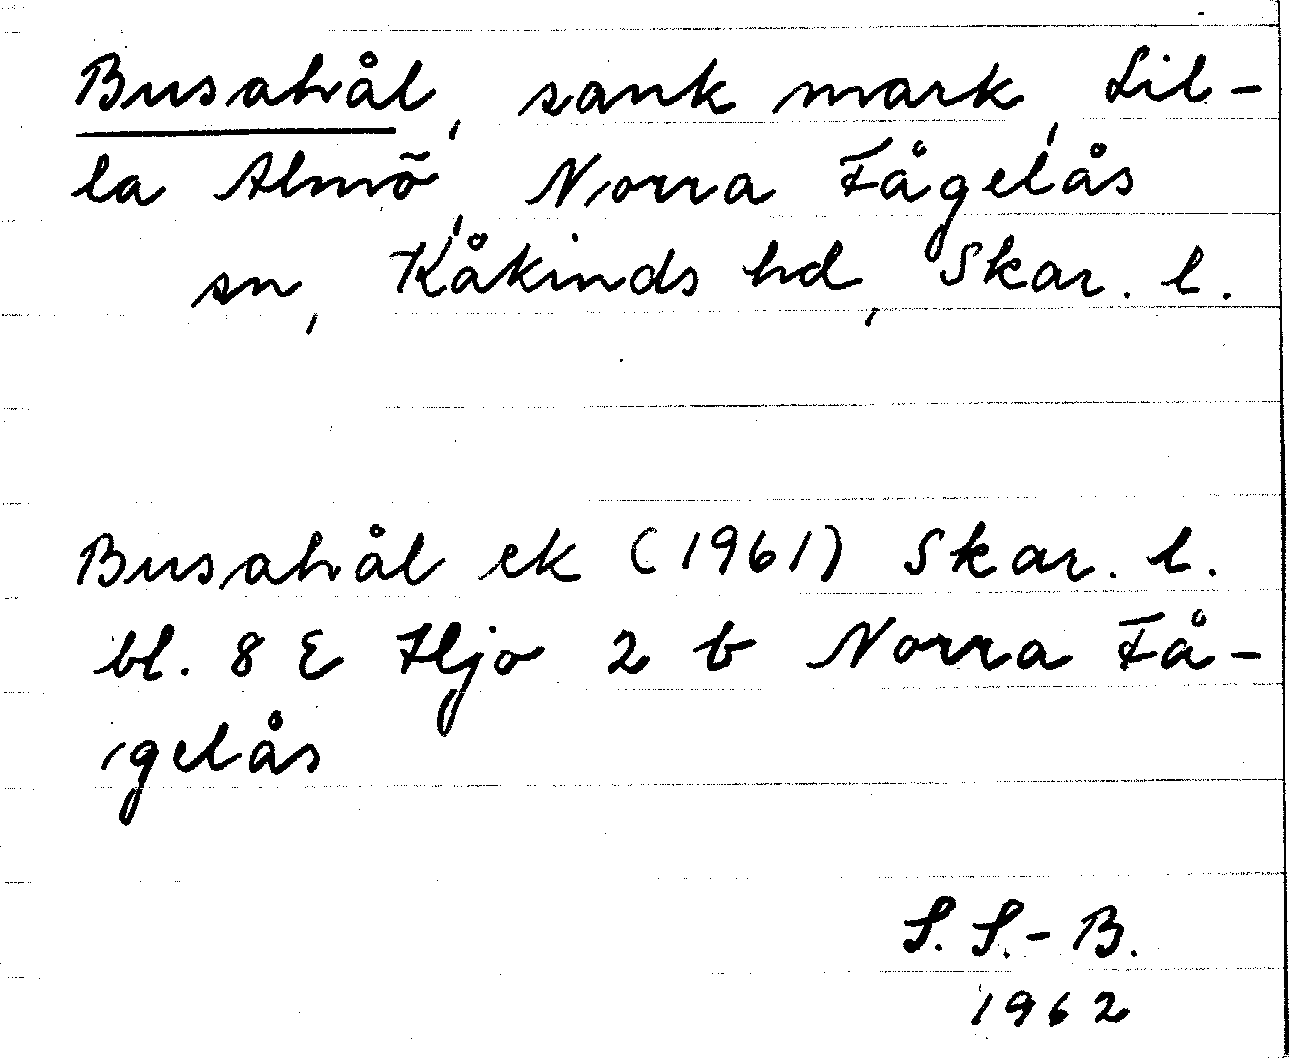 Busahål, sank mark, Lil-
la Almö, Norra Fågelås
sn, Kåkinds hd, Skar. l.
Busahål ek (1961) Skar. l.
bl. 8 E Hjo 2 b Norra Få-
gelås
S. S.-B.
1962